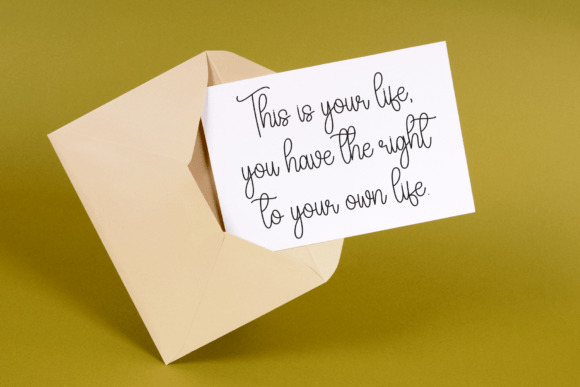 This is your life,
you have the right
to your own life.